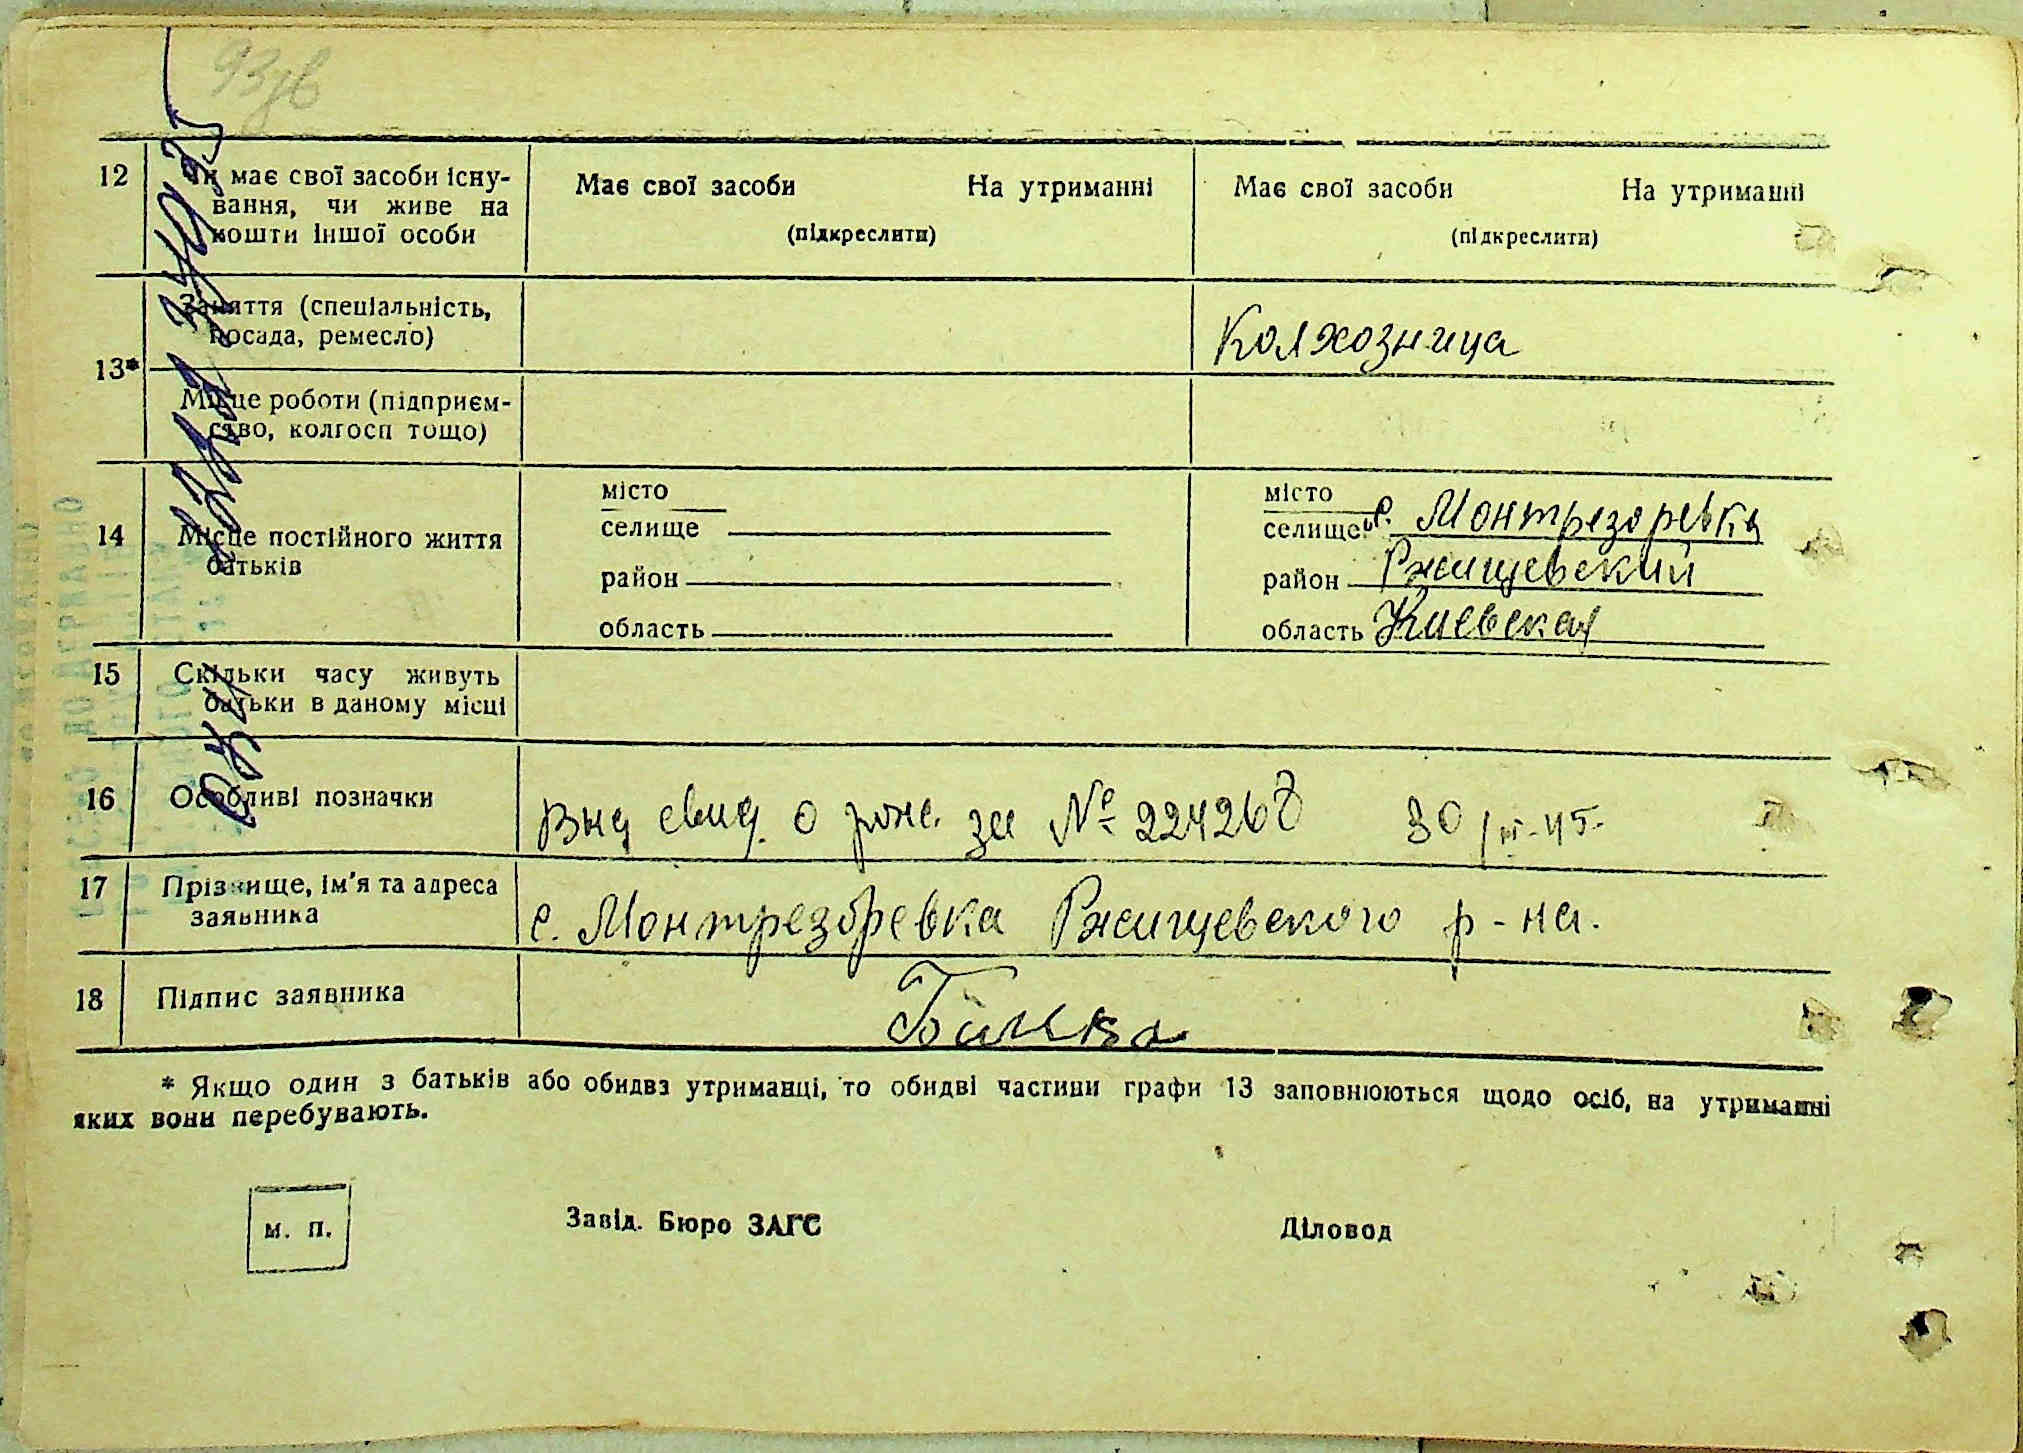 93зв
12 Чи має свої засоби існу-
вання, чи живе на
кошти іншої особи
Має свої засоби На утриманні
(підкреслити)
Має свої засоби На утриманні
(підкреслити)
13*
Заняття (спеціальність,
посада, ремесло)
Колхозница
Місце роботи (підприєм-
ство, колгосп тощо)
14 Місце постійного життя
батьків
місто
селище
район
область
місто
селище с. Монтрезоревка
район Ржищевский
область Киевская
15 Скільки часу живуть
батьки в даному місці
16 Особливі позначки
Выд свид. о рож. за № 224268 30/III-45.
17 Прізвище, ім'я та адреса
заявника
с. Монтрезоревка Ржищевского р-на.
18 Підпис заявника
* Якщо один з батьків або обидва утриманці, то обидві частини графи 13 заповнюються щодо осіб, на утриманні
яких вони перебувають.
м. п.
Завід. Бюро ЗАГС
Діловод